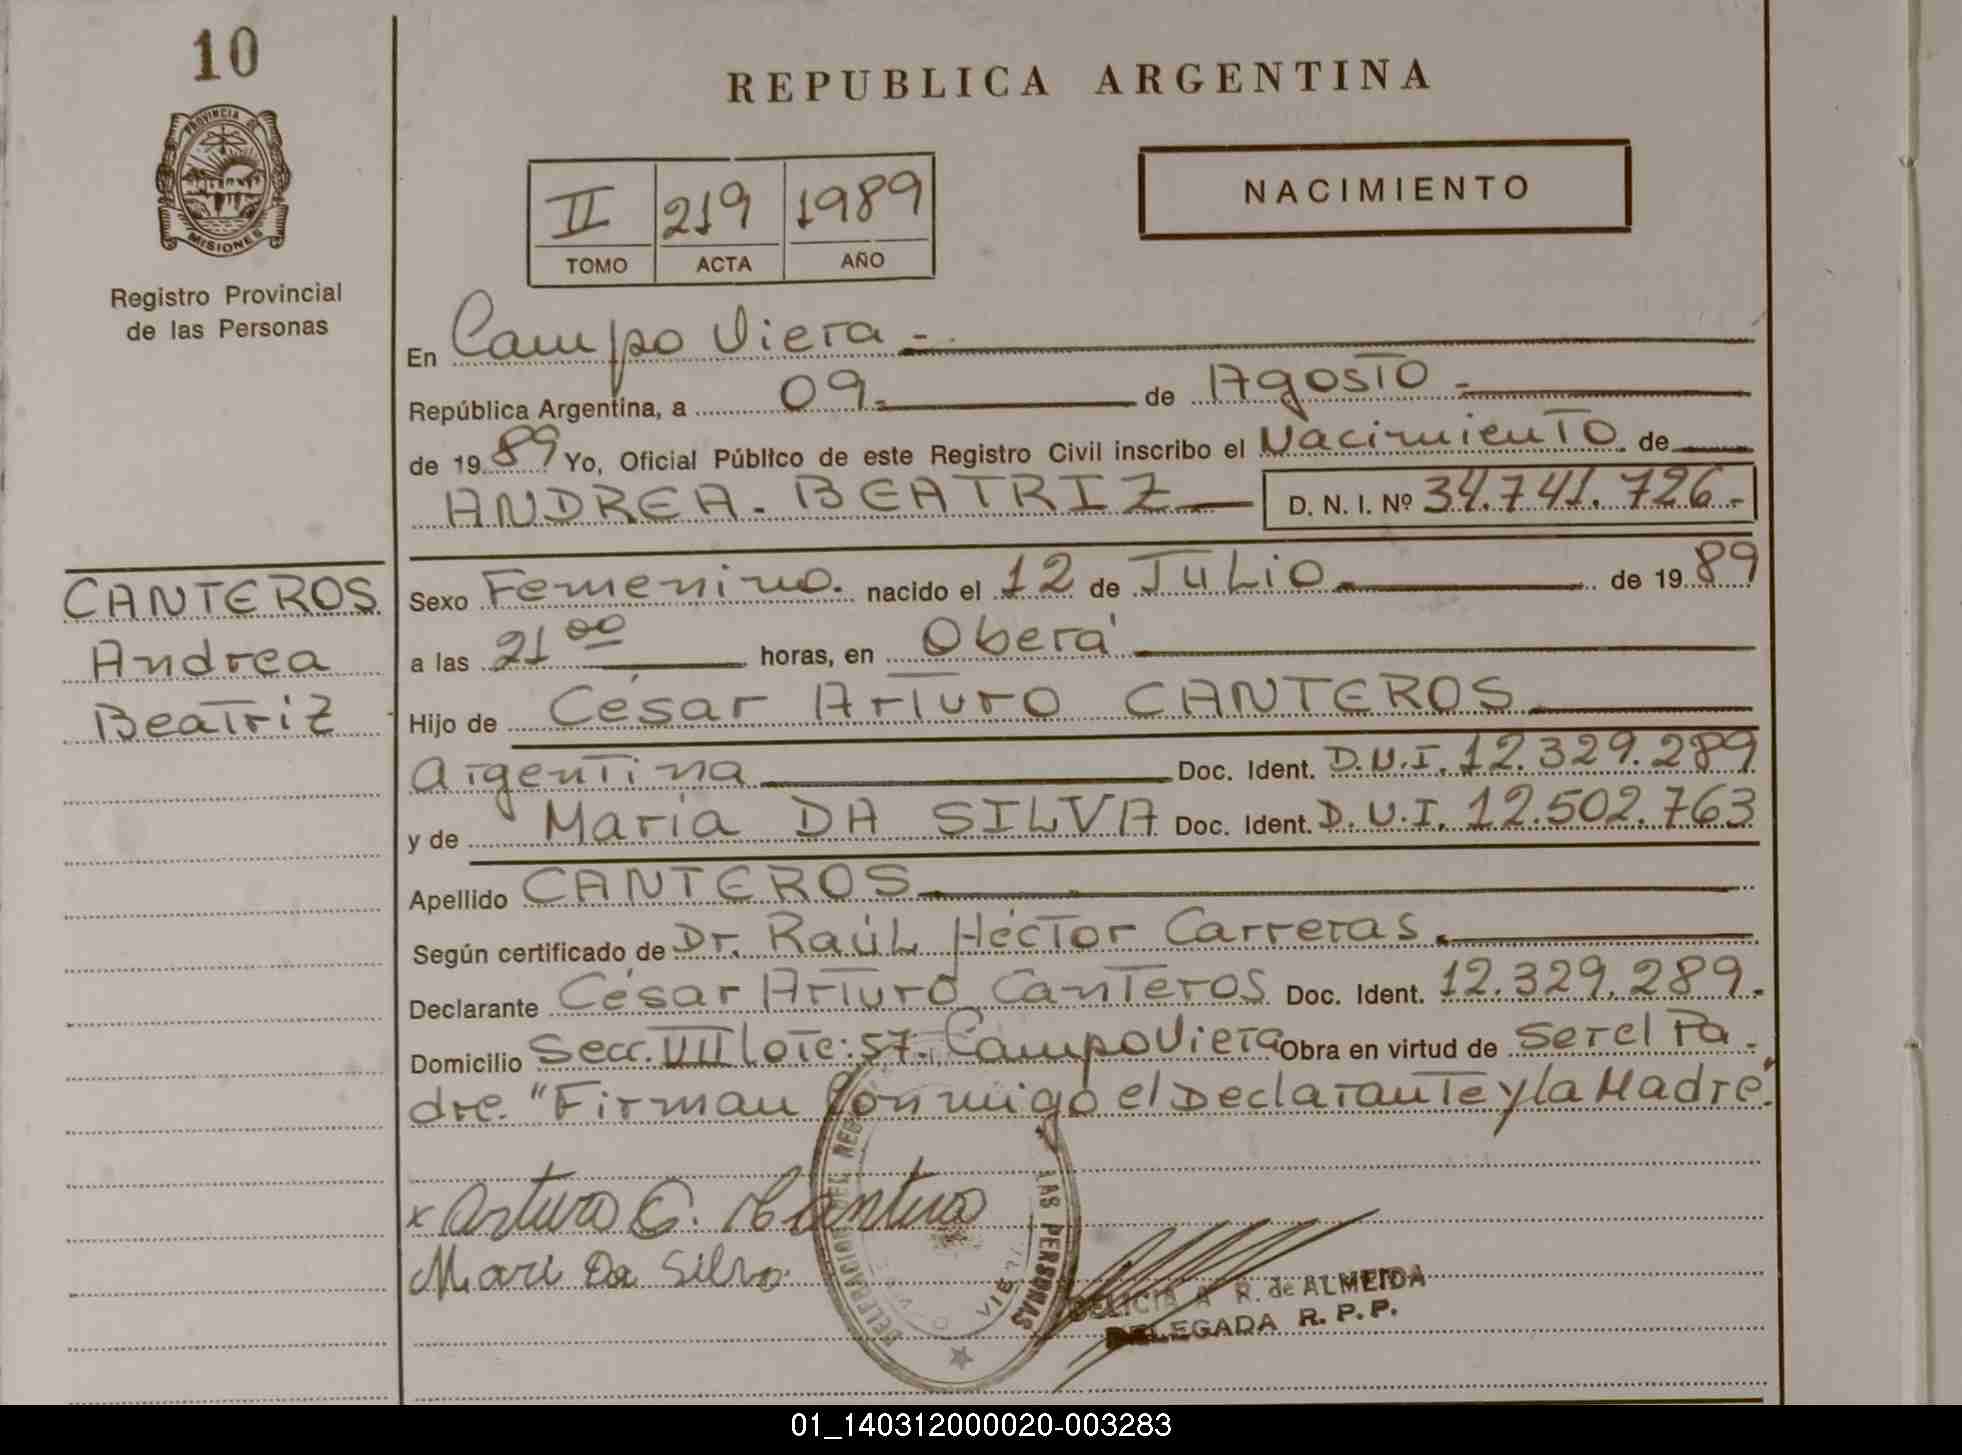 10
PROVINCIA DE
MISIONES
Registro Provincial
de las Personas
CANTEROS
Andrea
Beatriz
REPUBLICA ARGENTINA
II 219 1989
TOMO ACTA AÑO
NACIMIENTO
En Campo Viera -.
República Argentina, a 09.- de Agosto -
de 1989 Yo, Oficial Público de este Registro Civil inscribo el Nacimiento de
ANDREA. BEATRIZ D. N. I. Nº 34.741.726.-
Sexo Femenino. nacido el 12 de Julio de 1989
a las 21 00 horas, en Oberá
Hijo de César Arturo CANTEROS
Argentina Doc. Ident. D.N.I. 12.329.289
y de María DA SILVA Doc. Ident. D.N.I. 12.502.763
Apellido CANTEROS
Según certificado de Dr. Raúl Héctor Carreras.
Declarante César Arturo Canteros Doc. Ident. 12.329.289.
Domicilio Secc. VII Lote: 57. Campo Viera Obra en virtud de ser el Pa-
dre. "Firman Conmigo el Declarante y la Madre".
x Arturo C. Cantero
Mari Da Silva
LAS PERSONAS
DELICIA A R. de ALMEIDA
DELEGADA R. P. P.
01_140312000020-003283